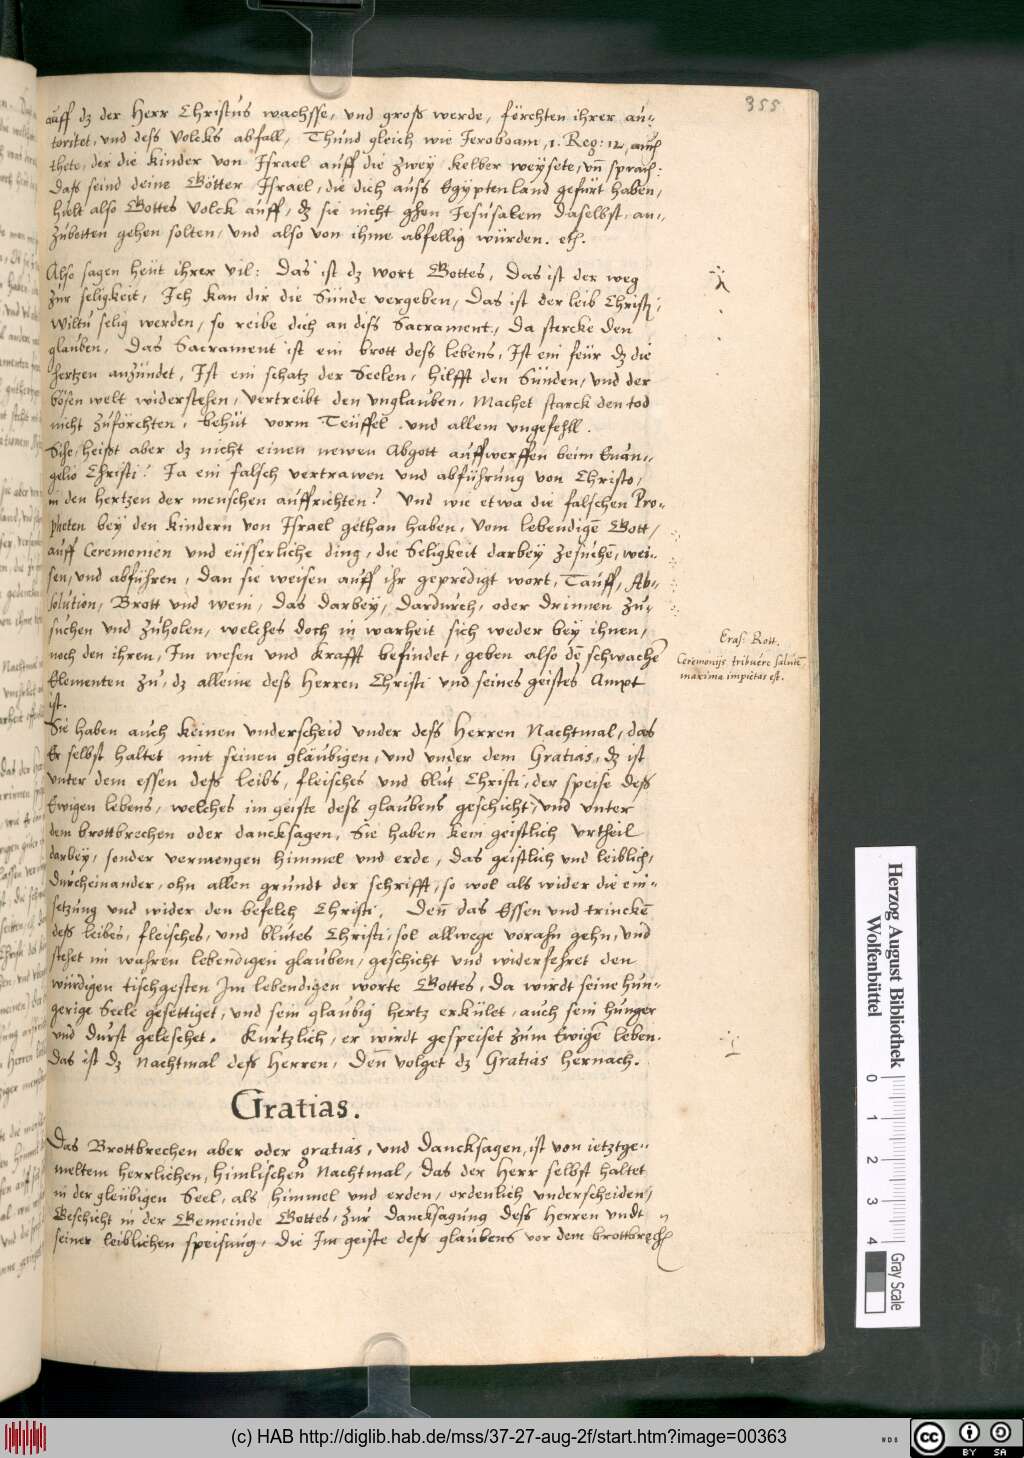 355
auff dz der Herr Christus wachsse, und gross werde, förchten ihrer au-
toritet, und dess Volcks abfall, Thund gleich wie Jeroboam, 1. Reg: 12, auch
thete, der die kinder von Israel auff die zwey kelber weysete, un̄ sprach:
Dass seind deine Götter Israel, die dich auss Egyptenland gefürt haben,
hielt also Gottes Volck auff, dz sie nicht ghen Jerusalem daselbst an-
zubotten gehen solten, und also von ihme abfellig würden. etc.
Also sagen heüt ihrer vil: Das ist dz wort Gottes, Das ist der weg
zur seligkeit, Ich kan dir die Sünde vergeben, Das ist der leib Christi,
Wiltu selig werden, so reibe dich an diss Sacrament, Da stercke den
glauben, Das Sacrament ist ein brott dess lebens, Ist ein feür dz die
hertzen anzündet, Ist ein schatz der Seelen, hilfft den Sünden, und der
bösen welt widerstehen, vertreibt den unglauben, Machet starck den tod
nicht zuförchten, behüt vorm Teüffel und allem ungefehll.
Sihe, heisst aber dz nicht einen newen Abgott auffwerffen beim Euan-
gelio Christi? Ja ein falsch vertrawen und abführung von Christo,
in den hertzen der menschen auffrichten? Und wie etwa die falschen Pro-
pheten bey den kindern von Israel gethan haben, Vom lebendigē Gott,
auff Ceremonien und eüsserliche ding, die Seligkeit darbey zesuchē, wei-
sen, und abführen, Dan sie weisen auff ihr gepredigt wort, Tauff, Ab-
solution, Brott und wein, das darbey, dardurch, oder drinnen zu-
suchen und zuholen, welches doch in warheit sich weder bey ihnen,
noch den ihren, Im wesen und krafft befindet, geben also dē schwachē
Elementen zu, dz alleine dess Herren Christi und seines geistes Ampt
ist.
Eras: Rott.
Ceremonijs tribuere salutē
maxima impietas est.
Sie haben auch keinen underscheid under dess Herren Nachtmal, das
Er selbst haltet mit seinen gläubigen, und under dem Gratias, dz ist
unter dem essen dess leibs, fleisches und blut Christi, der speise dess
Ewigen lebens, welches im geiste dess glaubens geschicht, und unter
dem brottbrechen oder dancksagen, Sie haben kein geistlich urtheil
darbey, sonder vermengen himmel und erde, das geistlich und leiblich,
durcheinander, ohn allen grundt der schrifft, so wol als wider die ein-
setzung und wider den befelch Christi, Den̄ das Essen und trinckē
dess leibes, fleisches, und blutes Christi, sol allwege vorahn gehn, und
stehet im wahren lebendigen glauben, geschicht und widerfehret den
würdigen tischgesten Im lebendigen worte Gottes, Da wirdt seine hun-
gerige Seele gesettiget, und sein glaubig hertz erkület, auch sein hunger
und durst geleschet. Kurtzlich, er wirdt gespeiset zum Ewigē leben.
Das ist dz Nachtmal dess Herren, Den̄ volget dz Gratias hernach.
Gratias.
Das Brottbrechen aber oder gratias, und Dancksagen, ist von ietztge-
meltem herrlichen, himlischen Nachtmal, das der Herr selbst haltet
in der gleübigen Seel, als himmel und erden, ordenlich underscheiden,
Geschicht in der Gemeinde Gottes, zur dancksagung dess Herren undt
seiner leiblichen speisung, die Im geiste dess glaubens vor dem brottbrechē
Herzog August Bibliothek
Wolfenbüttel
0 1 2 3 4
Gray Scale
(c) HAB http://diglib.hab.de/mss/37-27-aug-2f/start.htm?image=00363
WDB
cc BY SA